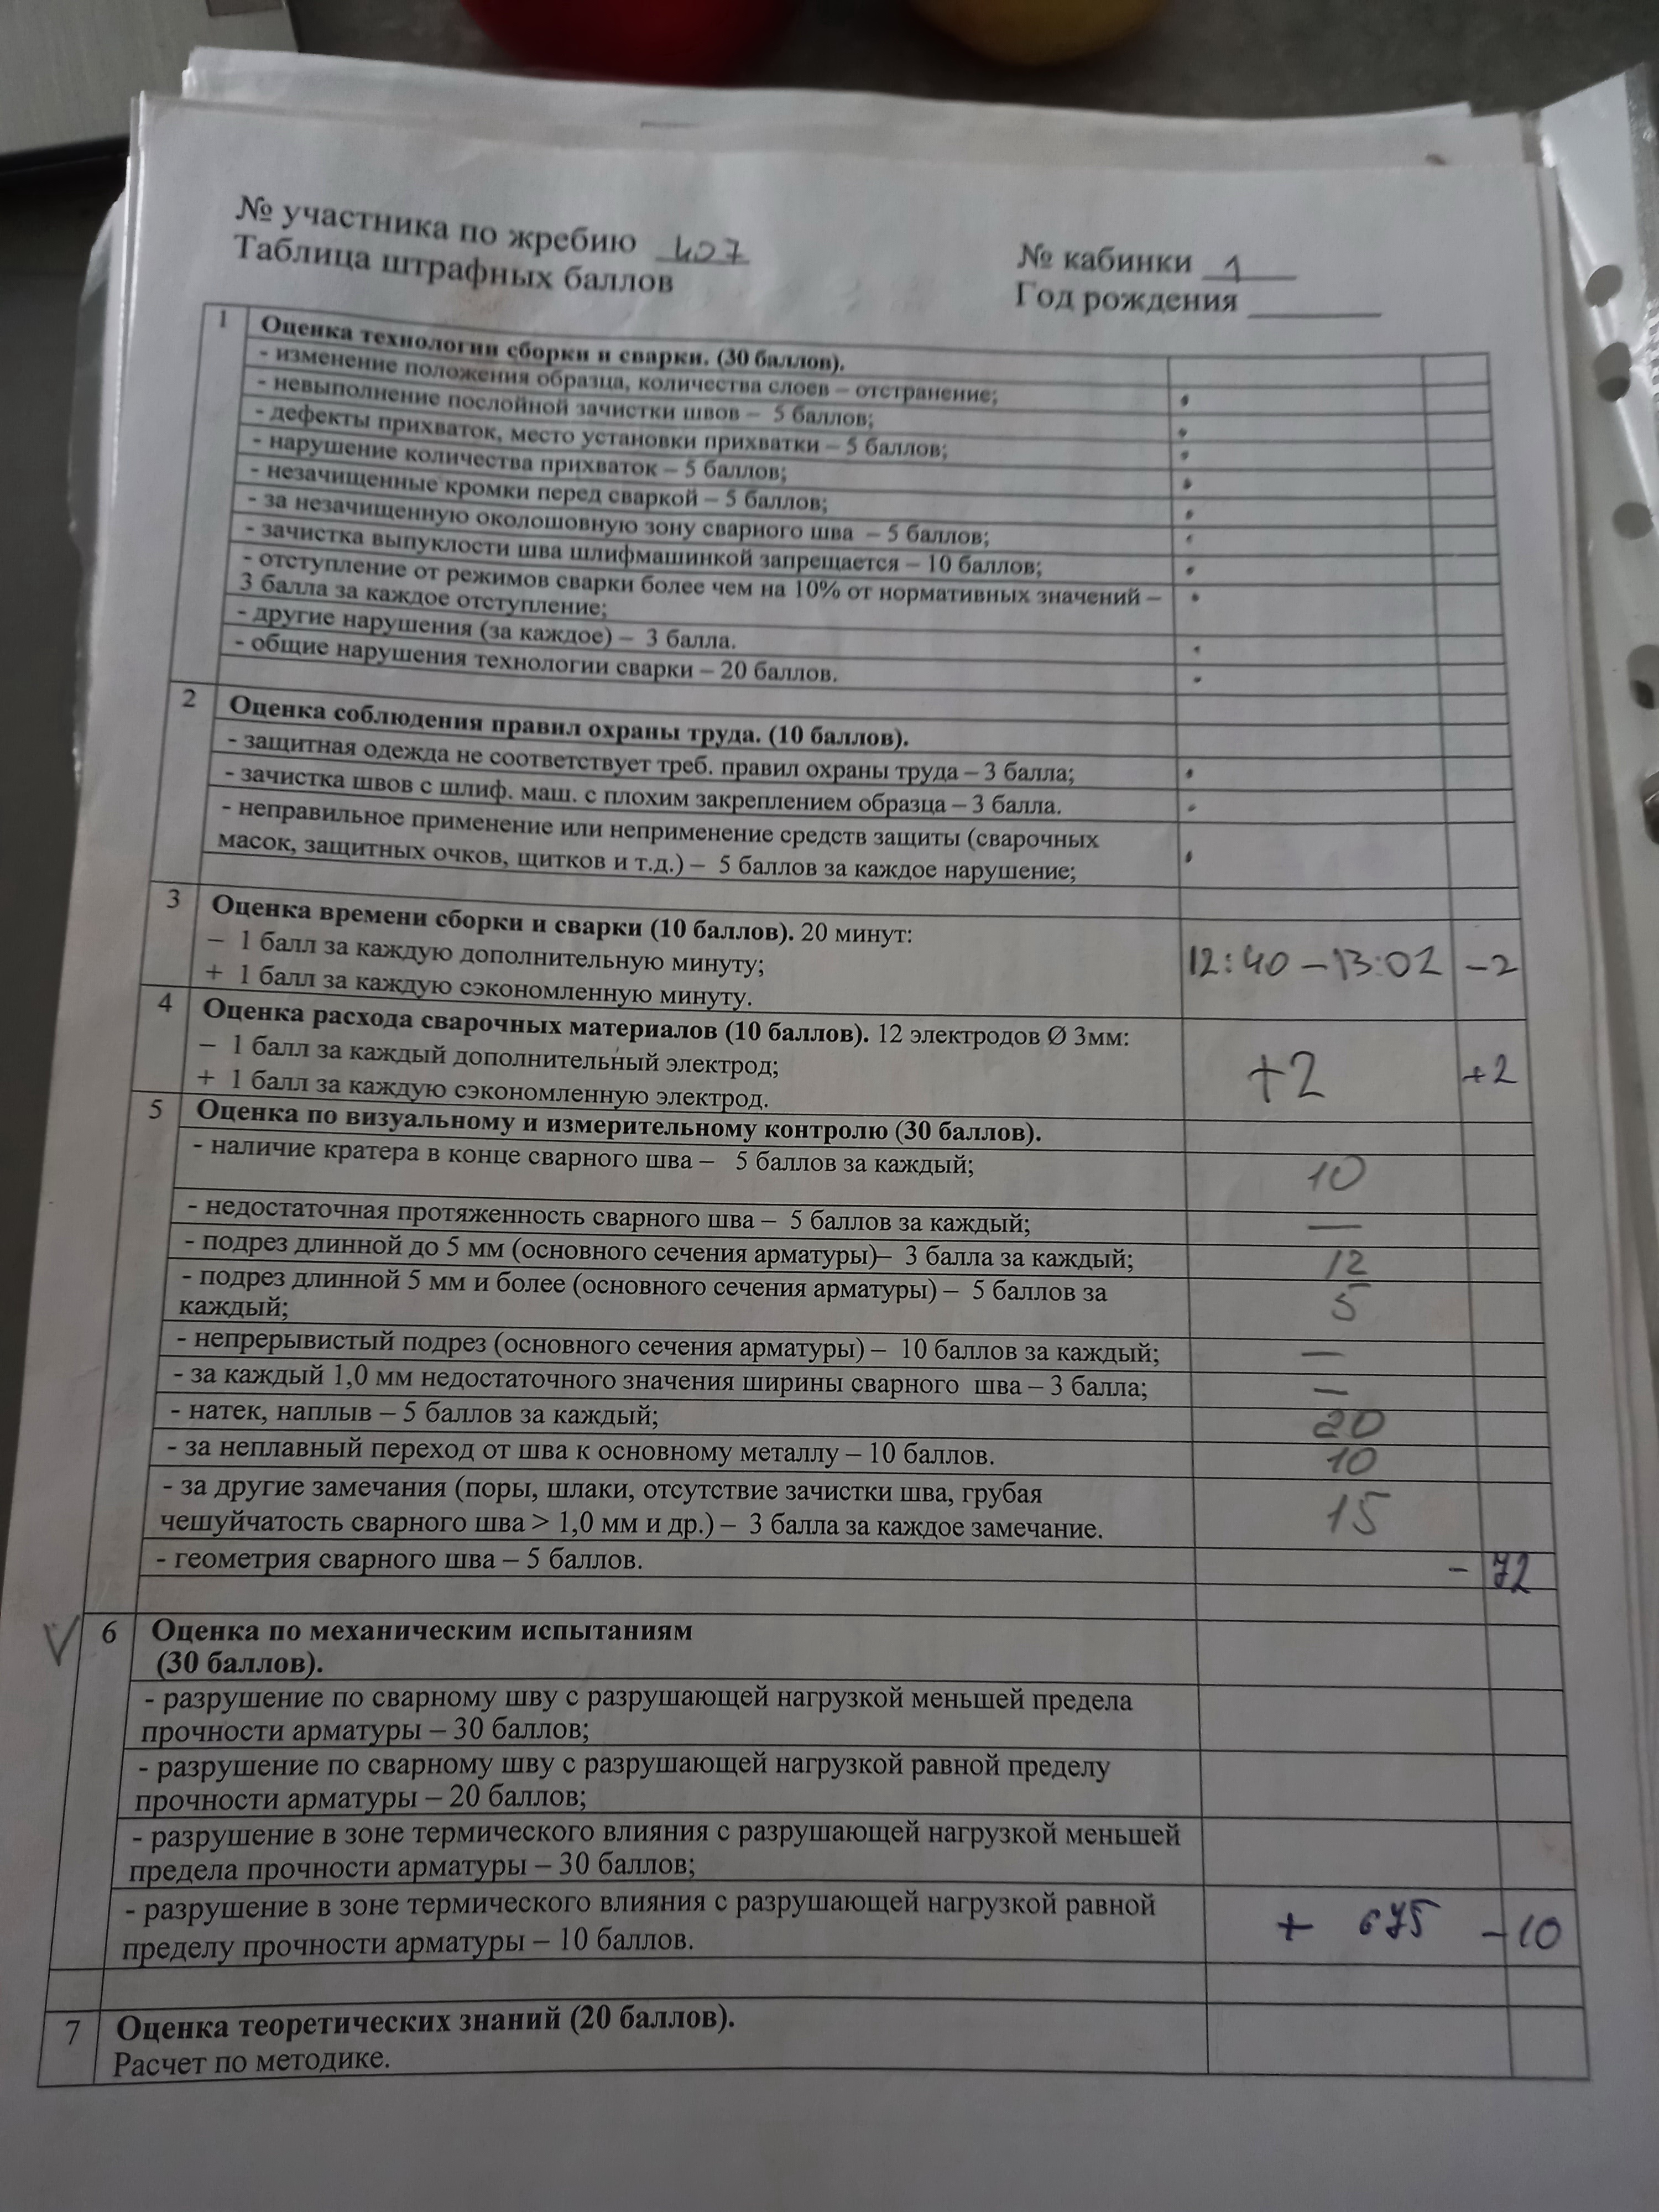 № участника по жребию 407
№ кабинки 1
Таблица штрафных баллов
Год рождения
1 Оценка технологии сборки и сварки. (30 баллов).
- изменение положения образца, количества слоев – отстранение;
- невыполнение послойной зачистки швов – 5 баллов;
- дефекты прихваток, место установки прихватки – 5 баллов;
- нарушение количества прихваток – 5 баллов;
- незачищенные кромки перед сваркой – 5 баллов;
- за незачищенную околошовную зону сварного шва – 5 баллов;
- зачистка выпуклости шва шлифмашинкой запрещается – 10 баллов;
- отступление от режимов сварки более чем на 10% от нормативных значений –
3 балла за каждое отступление;
- другие нарушения (за каждое) – 3 балла.
- общие нарушения технологии сварки – 20 баллов.
2 Оценка соблюдения правил охраны труда. (10 баллов).
- защитная одежда не соответствует треб. правил охраны труда – 3 балла;
- зачистка швов с шлиф. маш. с плохим закреплением образца – 3 балла.
- неправильное применение или неприменение средств защиты (сварочных
масок, защитных очков, щитков и т.д.) – 5 баллов за каждое нарушение;
3 Оценка времени сборки и сварки (10 баллов). 20 минут:
– 1 балл за каждую дополнительную минуту;
12:40 – 13:02 -2
+ 1 балл за каждую сэкономленную минуту.
4 Оценка расхода сварочных материалов (10 баллов). 12 электродов Ø 3мм:
– 1 балл за каждый дополнительный электрод;
+2 +2
+ 1 балл за каждую сэкономленную электрод.
5 Оценка по визуальному и измерительному контролю (30 баллов).
- наличие кратера в конце сварного шва – 5 баллов за каждый; 10
- недостаточная протяженность сварного шва – 5 баллов за каждый; —
- подрез длинной до 5 мм (основного сечения арматуры)– 3 балла за каждый; 12
- подрез длинной 5 мм и более (основного сечения арматуры) – 5 баллов за
каждый; 5
- непрерывистый подрез (основного сечения арматуры) – 10 баллов за каждый; —
- за каждый 1,0 мм недостаточного значения ширины сварного шва – 3 балла; —
- натек, наплыв – 5 баллов за каждый; 20
- за неплавный переход от шва к основному металлу – 10 баллов. 10
- за другие замечания (поры, шлаки, отсутствие зачистки шва, грубая
чешуйчатость сварного шва > 1,0 мм и др.) – 3 балла за каждое замечание. 15
- геометрия сварного шва – 5 баллов. - 72
V 6 Оценка по механическим испытаниям
(30 баллов).
- разрушение по сварному шву с разрушающей нагрузкой меньшей предела
прочности арматуры – 30 баллов;
- разрушение по сварному шву с разрушающей нагрузкой равной пределу
прочности арматуры – 20 баллов;
- разрушение в зоне термического влияния с разрушающей нагрузкой меньшей
предела прочности арматуры – 30 баллов;
- разрушение в зоне термического влияния с разрушающей нагрузкой равной
пределу прочности арматуры – 10 баллов. + 675 -10
7 Оценка теоретических знаний (20 баллов).
Расчет по методике.